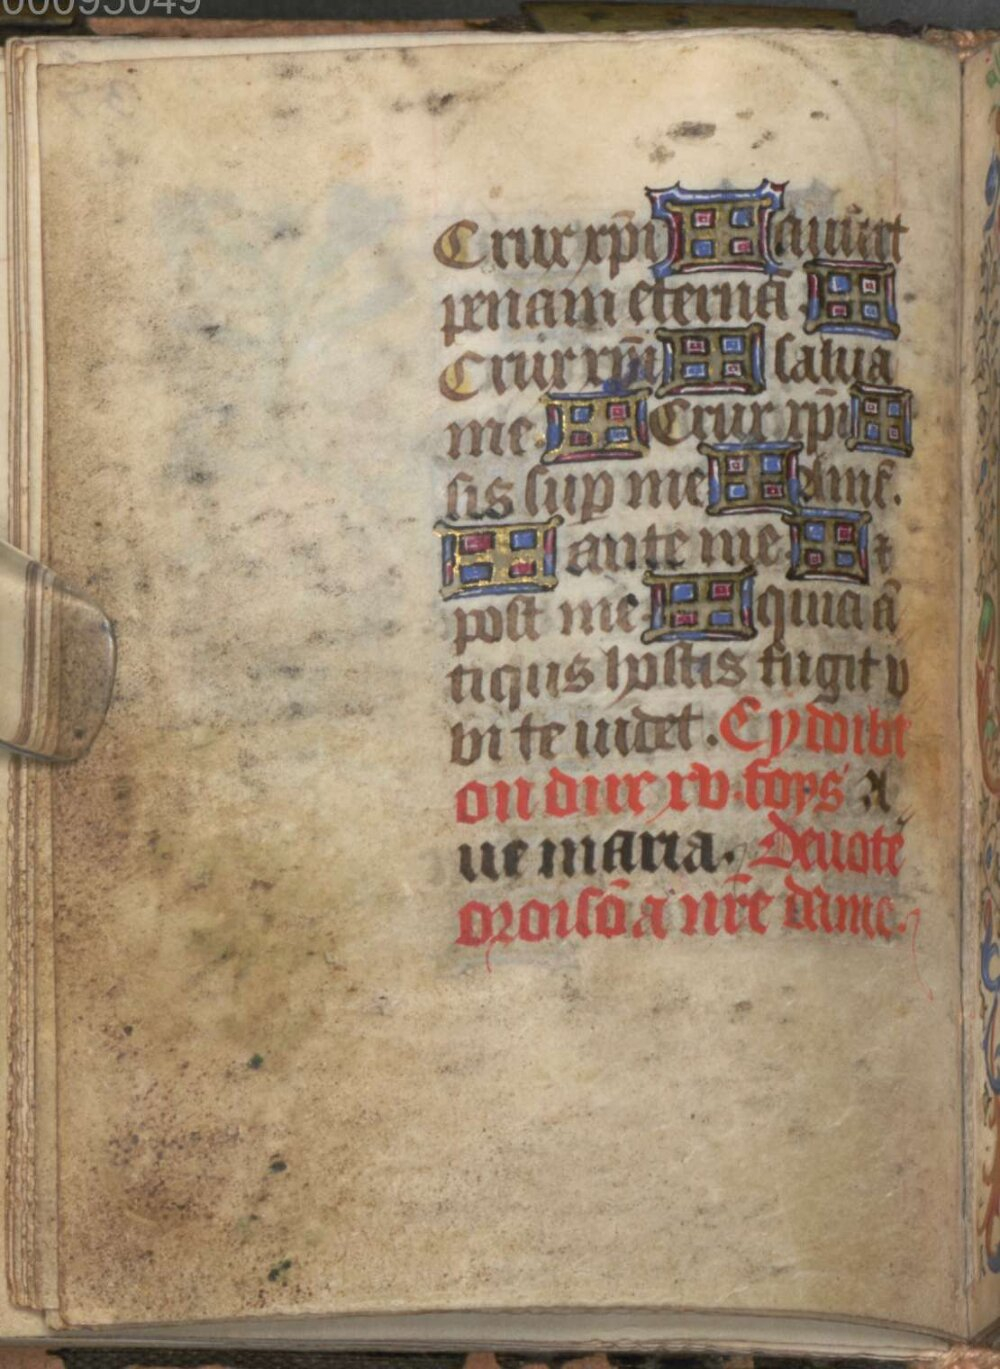 00095049
Crux xp̄i auūtat
penam eternā
Crux xp̄i salua
me Crux xp̄i
sis sup me Amē.
ante me ⁊
post me quia ā
tiquis hostis fugit v
vi te uidet. Cy doibt
on dire xv. foys A
ue maria. Deuote
oroisō a nr̄e dame.